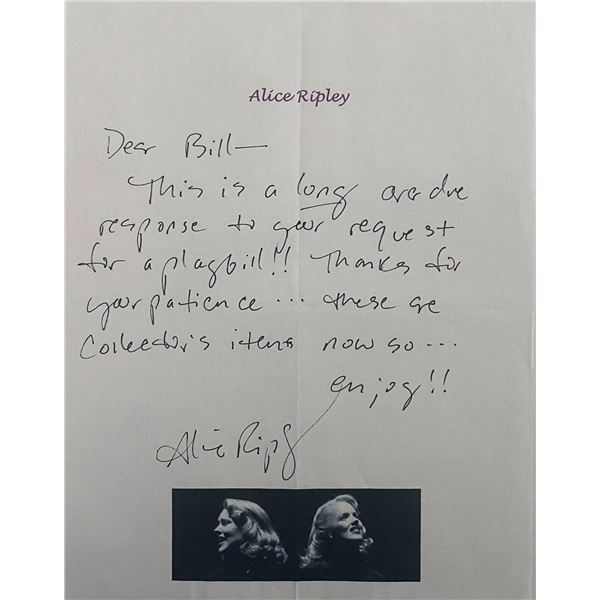 Alice Ripley
Dear Bill—
This is a long overdue
response to your request
for a playbill!! Thanks for
your patience... these are
Collector's items now so...
enjoy!!
Alice Ripley